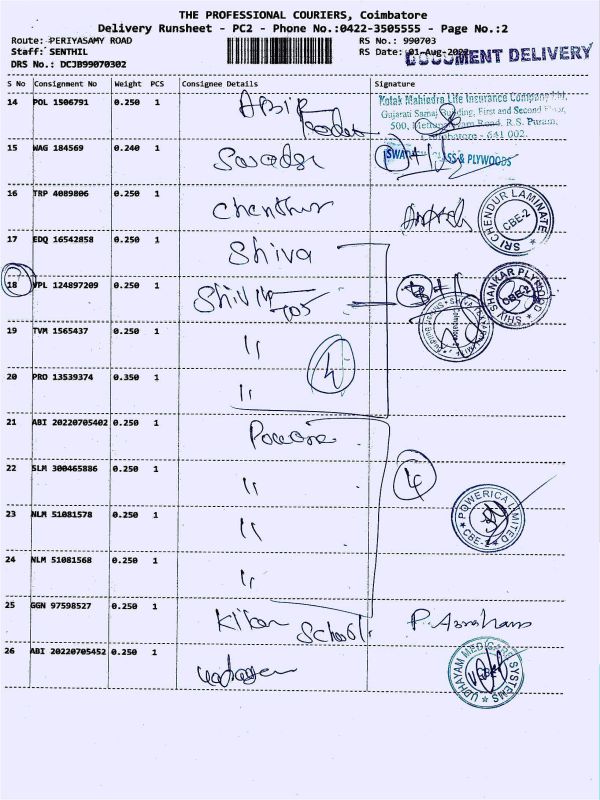 THE PROFESSIONAL COURIERS, Coimbatore
Delivery Runsheet - PC2 - Phone No.:0422-3505555 - Page No.:2
Route: PERIYASAMY ROAD
RS No.: 990703
Staff: SENTHIL
RS Date: 01-Aug-2022
DOCUMENT DELIVERY
DRS No.: DCJB99070302
S No Consignment No Weight PCS Consignee Details Signature
14 POL 1506791 0.250 1
Kotak Mahindra Life Insurance Company Ltd,
Gujarati Samaj Building, First and Second Floor,
500, Mettupalayam Road, R.S. Puram,
Coimbatore - 641 002.
15 WAG 184569 0.240 1
GLASS & PLYWOODS
16 TRP 4089806 0.250 1 Chenthur
SRI CHENDUR LAMINATE
CBE-2
17 EDQ 16542858 0.250 1 Shiva
18 VPL 124897209 0.250 1
SHIV SHANKAR PLYWOOD
CBE-2
19 TVM 1565437 0.250 1 "
4
20 PRO 13539374 0.350 1 "
21 ABI 20220705402 0.250 1
22 SLM 300465886 0.250 1 "
4
23 NLM 51081578 0.250 1 "
POWERICA LIMITED
CBE-2
24 NLM 51081568 0.250 1 "
25 GGN 97598527 0.250 1 Kikani School. P. Abraham
26 ABI 20220705452 0.250 1
UDHAYAM MEDICARE SYSTEMS